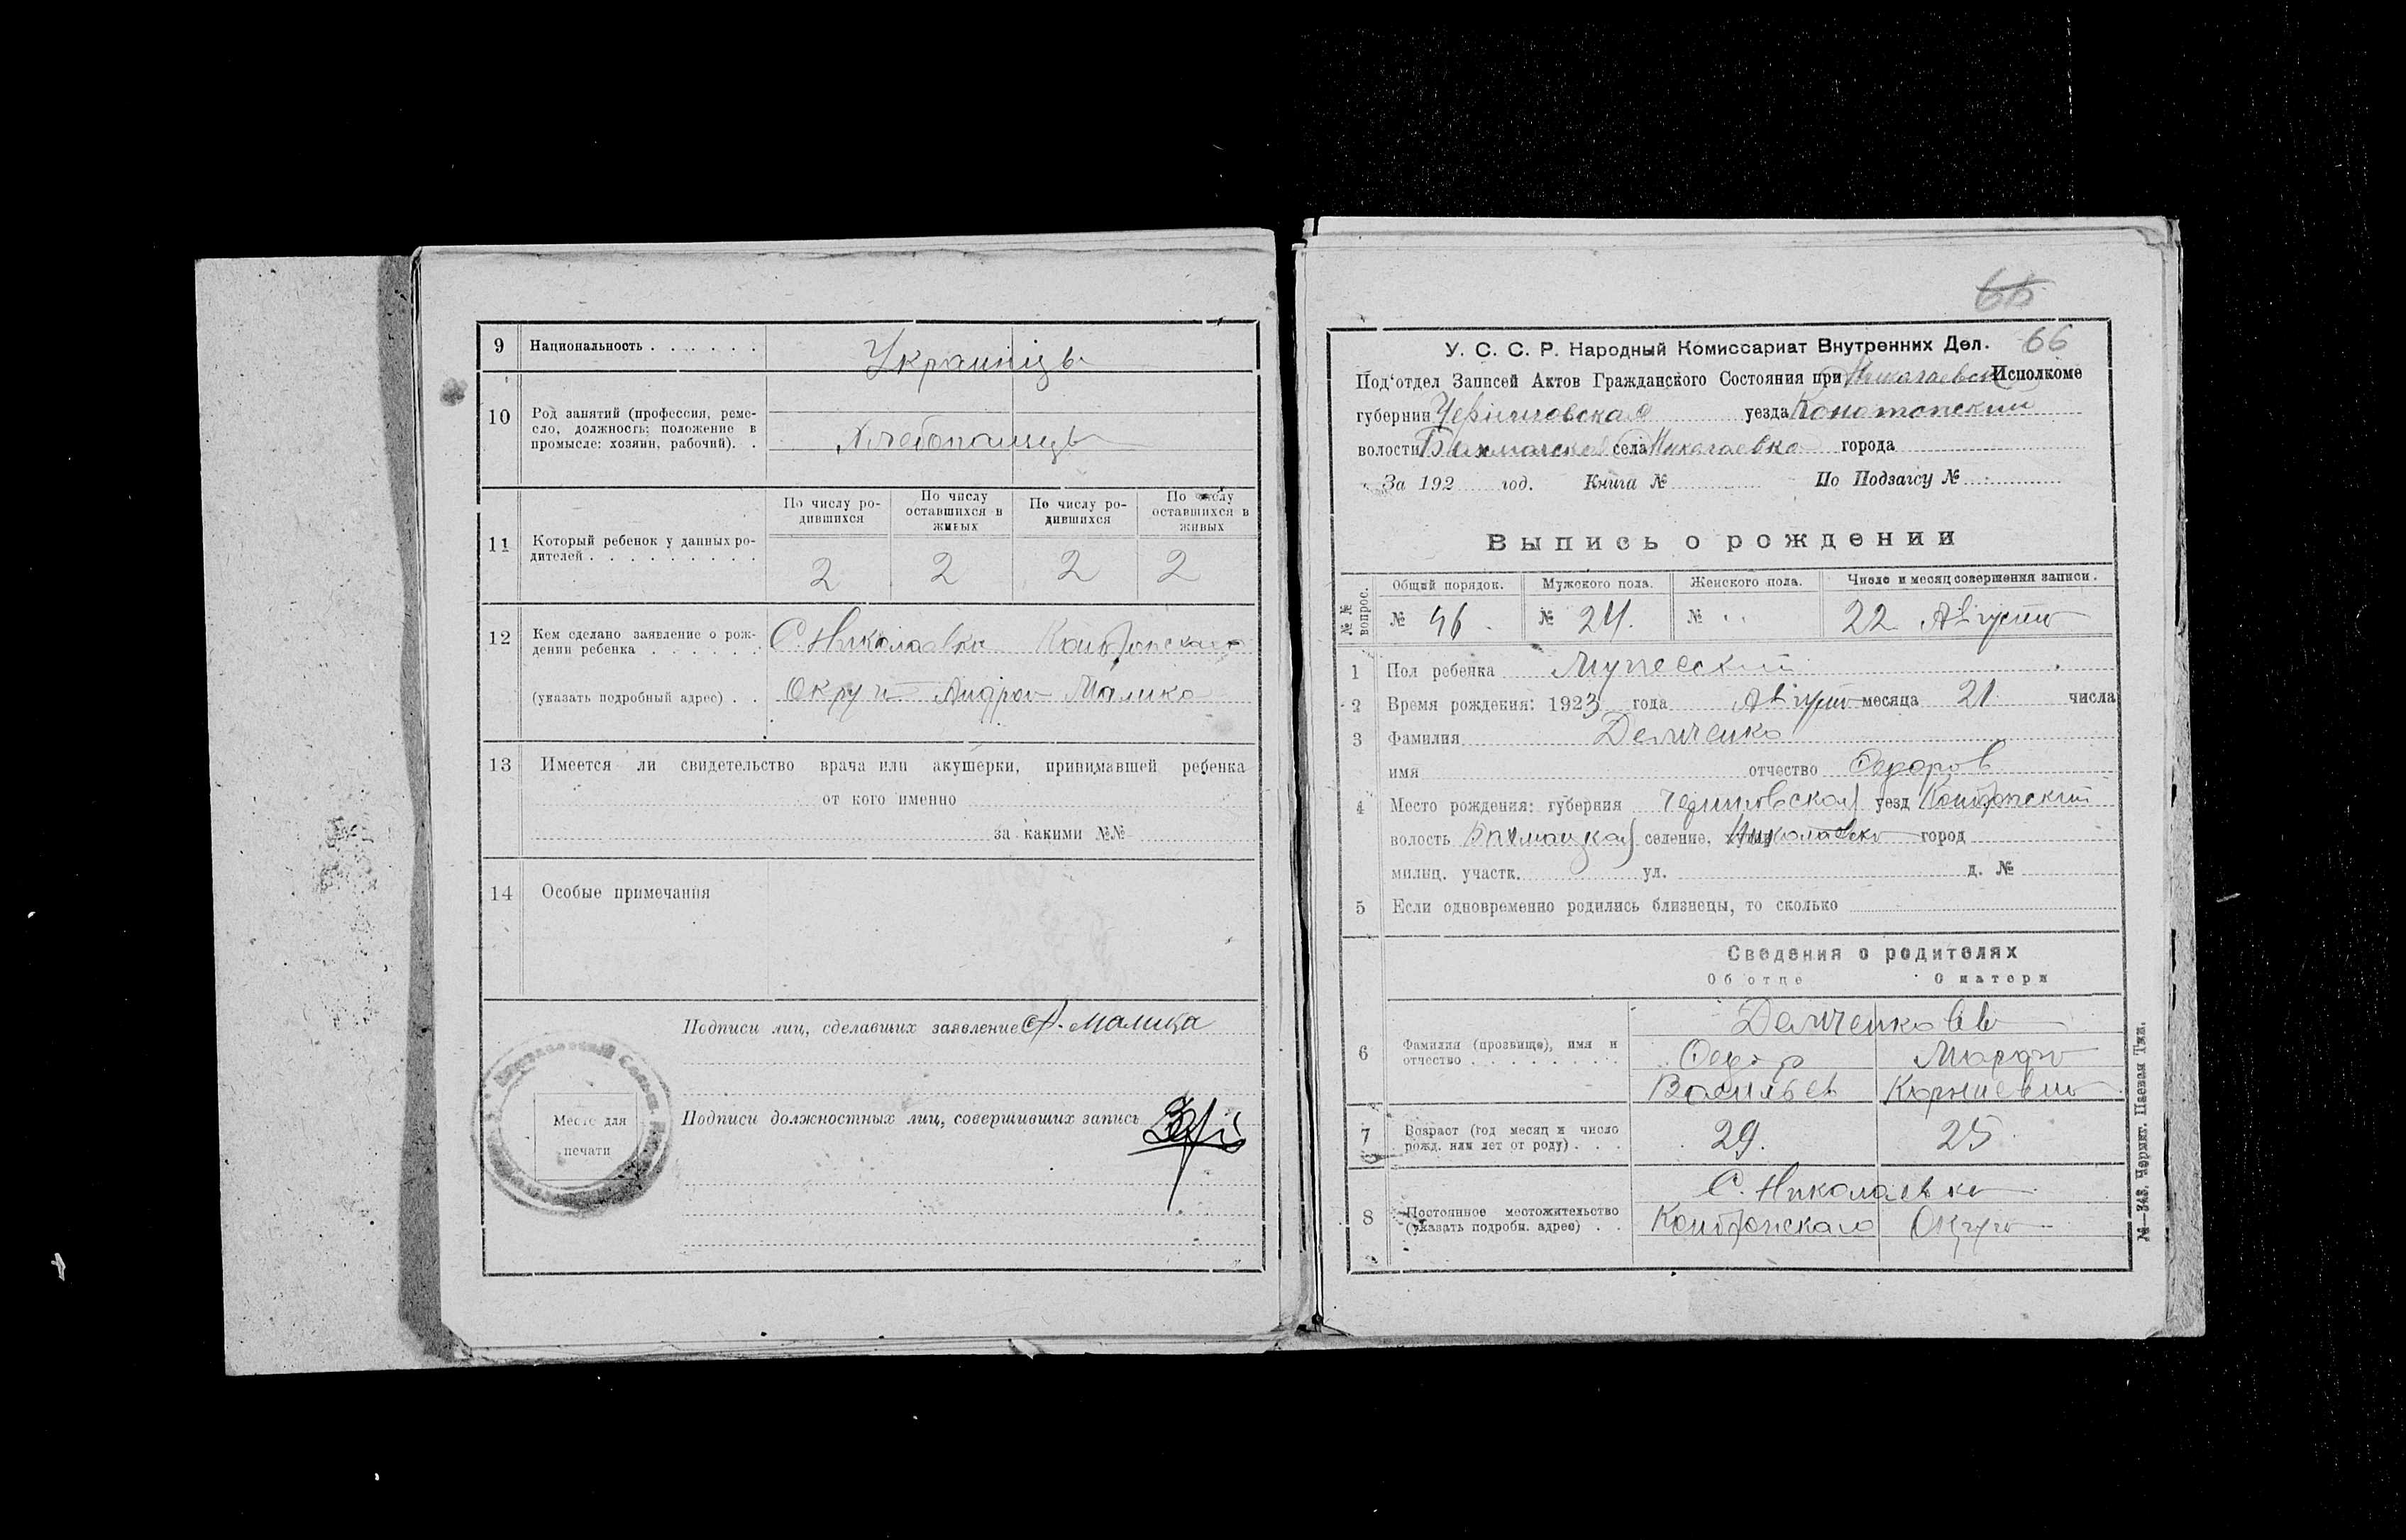 9 Национальность . . . . . . Украинцы
10 Род занятий (профессия, реме-
сло, должность; положение в
промысле: хозяин, рабочий). .
Хлебопашцы
11 Который ребенок у данных ро-
дителей . . . . . . . . .
По числу ро-
дившихся
По числу
оставшихся в
живых
По числу ро-
дившихся
По числу
оставшихся в
живых
2 2 2 2
12 Кем сделано заявление о рож-
дении ребенка . . . . . . С. Николаевки Конотопскаго
(указать подробный адрес) . . Округа Андрей Малика
13 Имеется ли свидетельство врача или акушерки, принимавшей ребенка
от кого именно
за какими №№
14 Особые примечания
Подписи лиц, сделавших заявление А. Малика
Подписи должностных лиц, совершивших запись
Место для
печати
66
У. С. С. Р. Народный Комиссариат Внутренних Дел. 66
Под'отдел Записей Актов Гражданского Состояния при Николаевск Исполкоме
губернии Черниговская уезда Конотопский
волости Бахмачской села Николаевка города
За 192 год. Книга № По Подзагсу №
Выпись о рождении
№ № вопрос.
Общий порядок. Мужского пола. Женского пола. Число и месяц совершения записи.
№ 46. № 24. № 22 Августа
1 Пол ребенка Мужеский
2 Время рождения: 1923 года Августа месяца 21 числа
3 Фамилия Демченко
имя отчество Федоров
4 Место рождения: губерния Черниговская уезд Конотопский
волость Бахмацкая селение, хутор Николаевка город
милиц. участк. ул. д. №
5 Если одновременно родились близнецы, то сколько
Сведения о родителях
Об отце О матери
6 Фамилия (прозвище), имя и
отчество . . . . . . . . .
Демченковы
Федор Марфа
Васильев Корниевна
7 Возраст (год месяц и число
рожд. или лет от роду) . . .
29. 25
8 Постоянное местожительство
(указать подробн. адрес) . .
С. Николаевка
Конотопскаго Округа
№—343. Черниг. Целевая Тип.